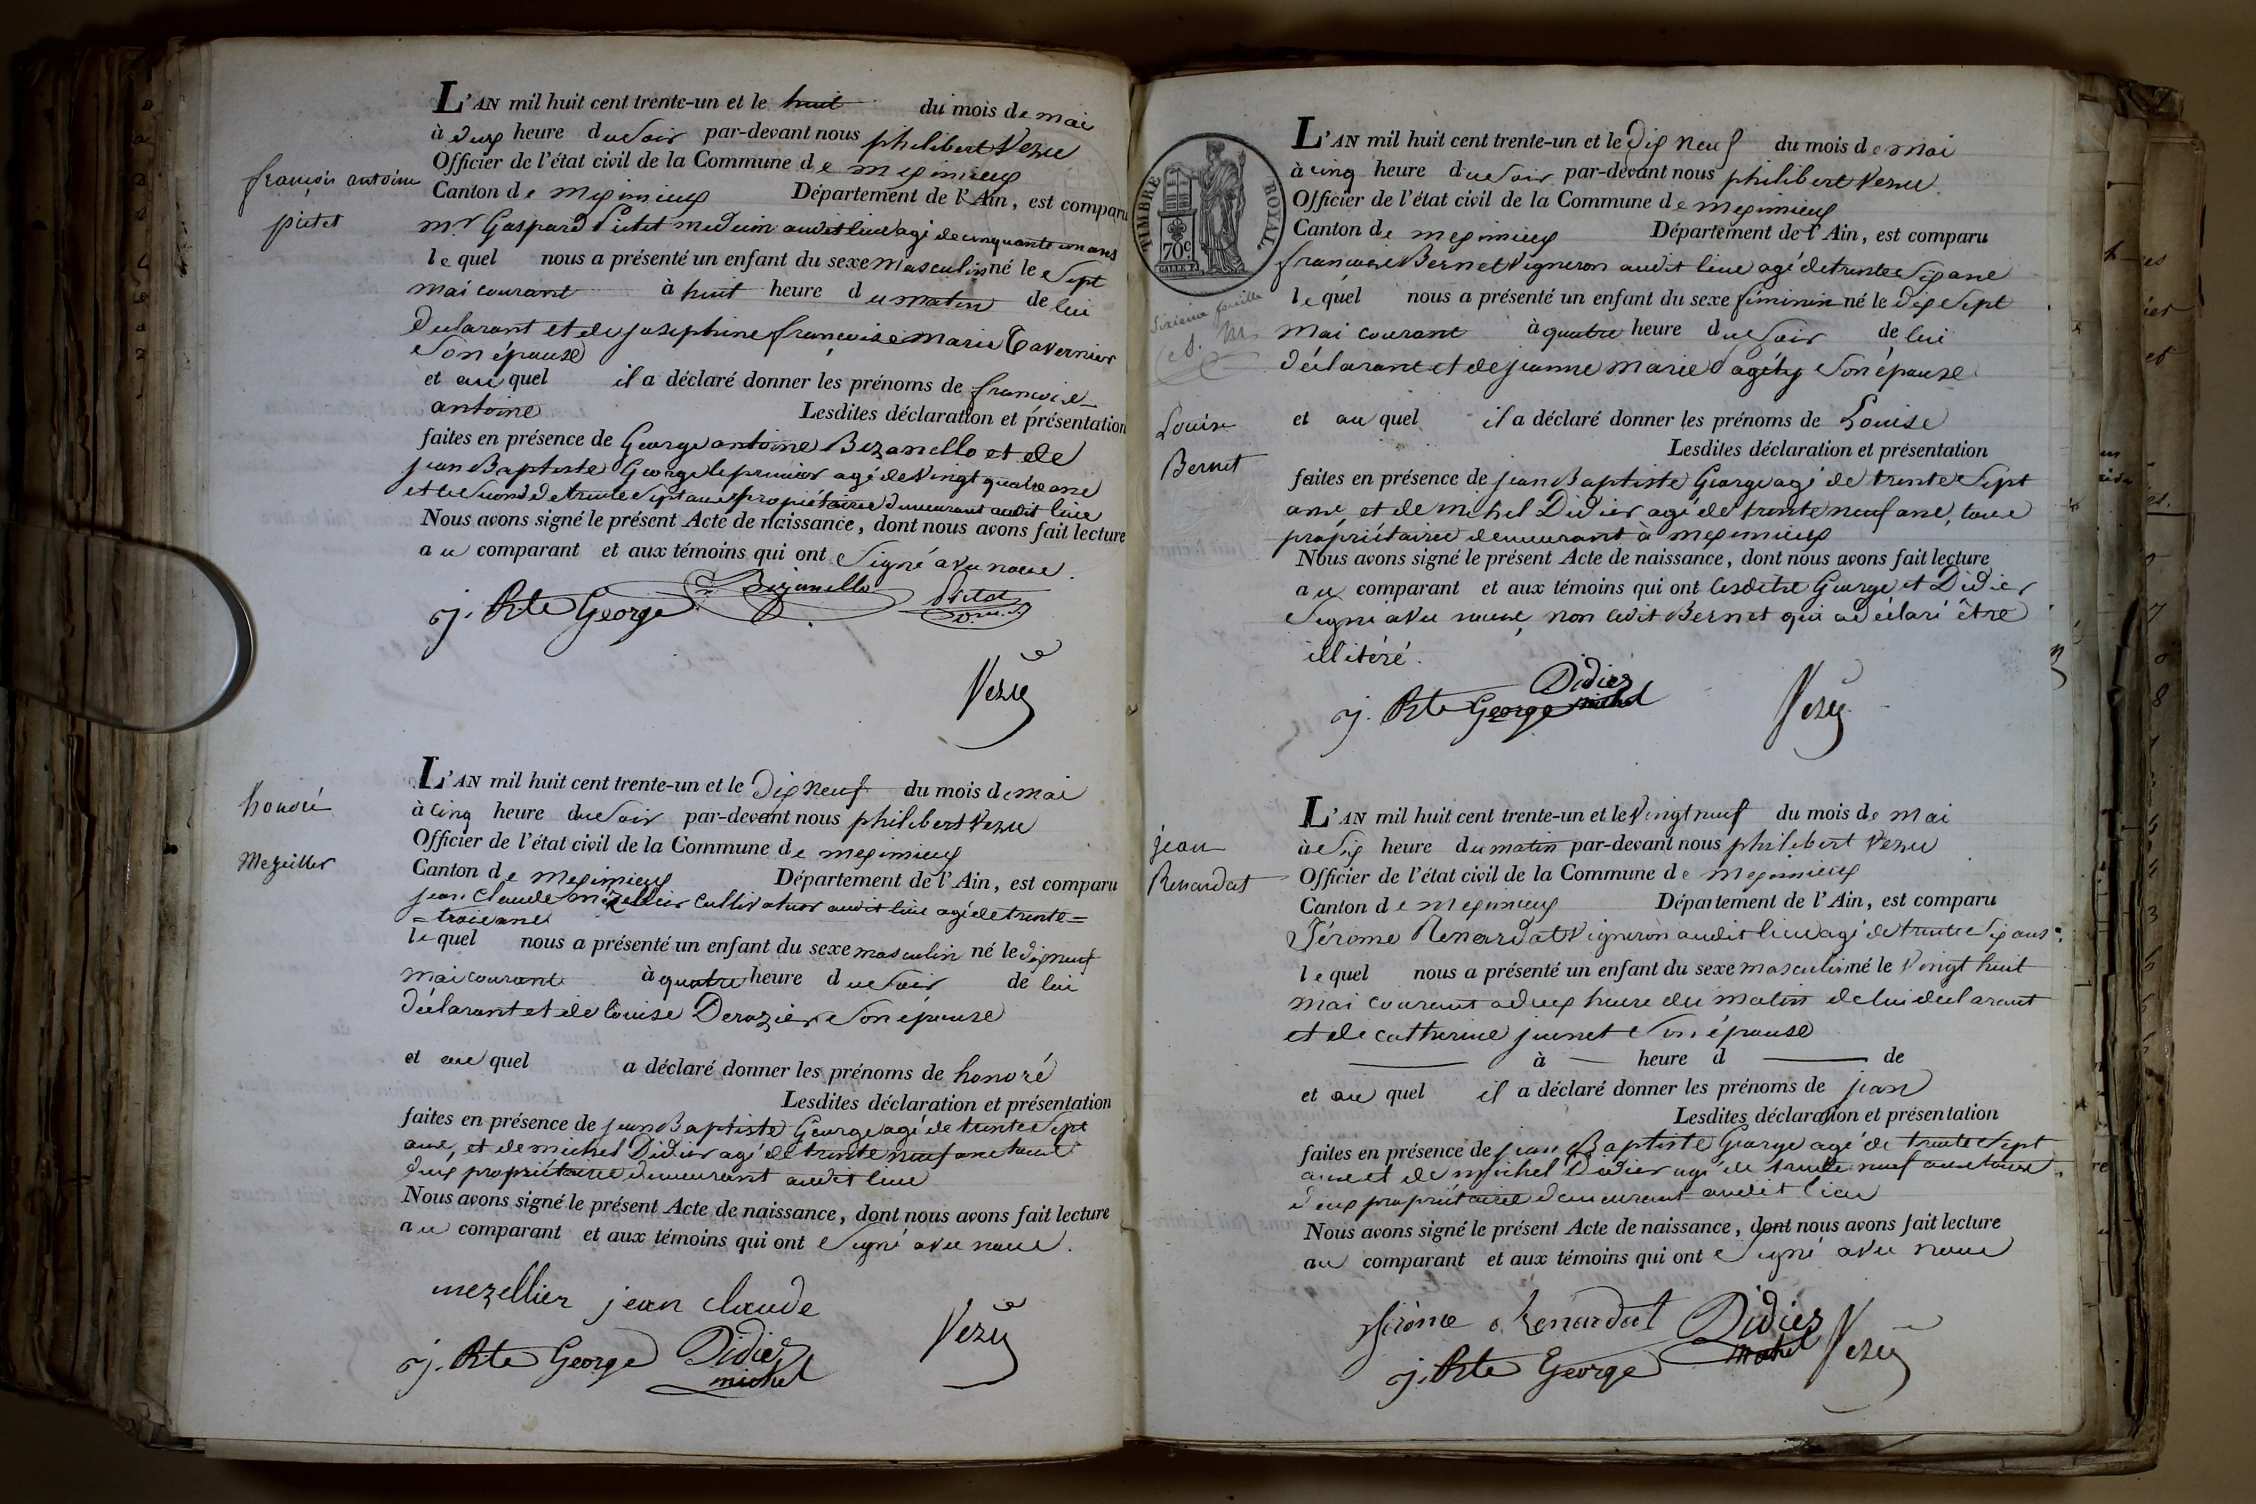 L'AN mil huit cent trente-un et le huit du mois de mai
à deux heure du soir par-devant nous philibert Vezu
Officier de l'état civil de la Commune de meximieux
françois antoine
Canton de meximieux Département de l'Ain, est comparu
pictet
mr Gaspard Pictet medecin audit lieu agé de cinquante un ans
lequel nous a présenté un enfant du sexe masculin né le sept
mai courant à huit heure du matin de lui
declarant et de josephine françoise marie Tavernier
son épouse
et auquel il a déclaré donner les prénoms de françois
antoine Lesdites déclaration et présentation
faites en présence de George antoine Bizanello et de
jean Baptiste George le premier agé de vingt quatre ans
et le second de trente sept ans propriétaires demeurant audit lieu
Nous avons signé le présent Acte de naissance, dont nous avons fait lecture
au comparant et aux témoins qui ont signé avec nous.
j. Bte George Bizanello Pictet
D.m.
Vezu
honoré
mezeiller
L'AN mil huit cent trente-un et le dix neuf du mois de mai
à cinq heure du soir par-devant nous philibert Vezu
Officier de l'état civil de la Commune de meximieux
Canton de meximieux Département de l'Ain, est comparu
jean Claude mézellier cultivateur audit lieu agé de trente=
=trois ans
lequel nous a présenté un enfant du sexe masculin né le dix neuf
mai courant à quatre heure du soir de lui
déclarant et de louise Derozier son épouse
et auquel a déclaré donner les prénoms de honoré
Lesdites déclaration et présentation
faites en présence de jean Baptiste George agé de trente sept
ans, et de michel Didier agé de trente neuf ans tous
deux propriétaires demeurant audit lieu
Nous avons signé le présent Acte de naissance, dont nous avons fait lecture
au comparant et aux témoins qui ont signé avec nous.
mezellier jean claude
j. Bte George Didier
michel
Vezu
TIMBRE ROYAL
70c
Sixième feuille
L'AN mil huit cent trente-un et le dix neuf du mois de mai
à cinq heure du soir par-devant nous philibert Vezu
Officier de l'état civil de la Commune de meximieux
Canton de meximieux Département de l'Ain, est comparu
françois Bernet vigneron audit lieu agé de trente six ans
lequel nous a présenté un enfant du sexe féminin né le dix sept
mai courant à quatre heure du soir de lui
déclarant et de jeanne marie son épouse
Louise
Bernet
et auquel il a déclaré donner les prénoms de Louise
Lesdites déclaration et présentation
faites en présence de jean Baptiste George agé de trente sept
ans, et de michel Didier agé de trente neuf ans, tous
propriétaires demeurant à meximieux
Nous avons signé le présent Acte de naissance, dont nous avons fait lecture
au comparant et aux témoins qui ont lesdits George et Didier
signé avec nous, non ledit Bernet qui a déclaré être
illitéré.
j. Bte George Didier
michel
Vezu
jean
Renardat
L'AN mil huit cent trente-un et le vingt neuf du mois de mai
à six heure du matin par-devant nous philibert Vezu
Officier de l'état civil de la Commune de meximieux
Canton de meximieux Département de l'Ain, est comparu
Jérome Renardat vigneron audit lieu agé de trente six ans
lequel nous a présenté un enfant du sexe masculin né le vingt huit
mai courant a deux heure du matin de lui declarant
et de catherine junet son épouse
à heure d de
et auquel il a déclaré donner les prénoms de jean
Lesdites déclaration et présentation
faites en présence de jean Baptiste George agé de trente sept
ans et de michel Didier agé de trente neuf ans tous
deux propriétaires demeurant audit lieu
Nous avons signé le présent Acte de naissance, dont nous avons fait lecture
au comparant et aux témoins qui ont signé avec nous
jérôme Renardat Didier
michel
j. Bte George Vezu